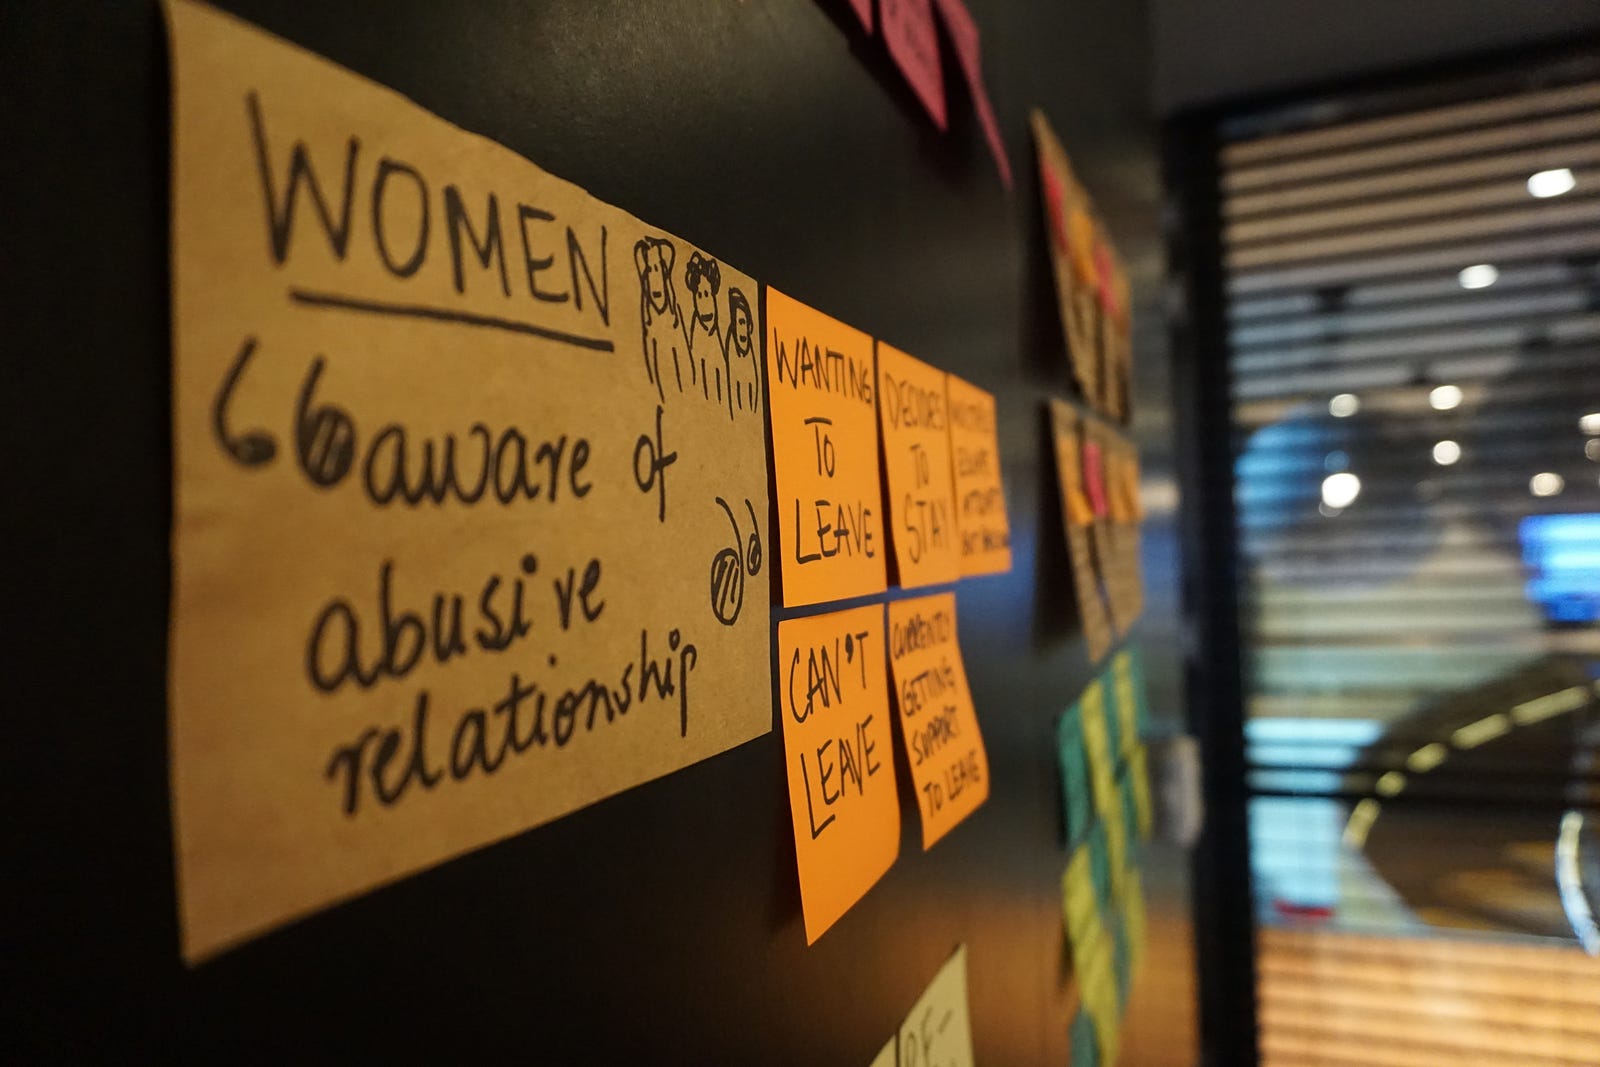 WOMEN
aware of
abusive
relationship
WANTING
TO
LEAVE
DECIDES
TO
STAY
ESCAPE
ATTEMPTS
BUT
CAN'T
LEAVE
CURRENTLY
GETTING
SUPPORT
TO LEAVE